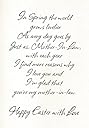 In Spring the world
grows lovelier
As every day goes by
Just as, Mother-In-Law,
with each year
I find more reasons why
I love you and
I'm glad that
you're my mother-in-law.
Happy Easter with Love